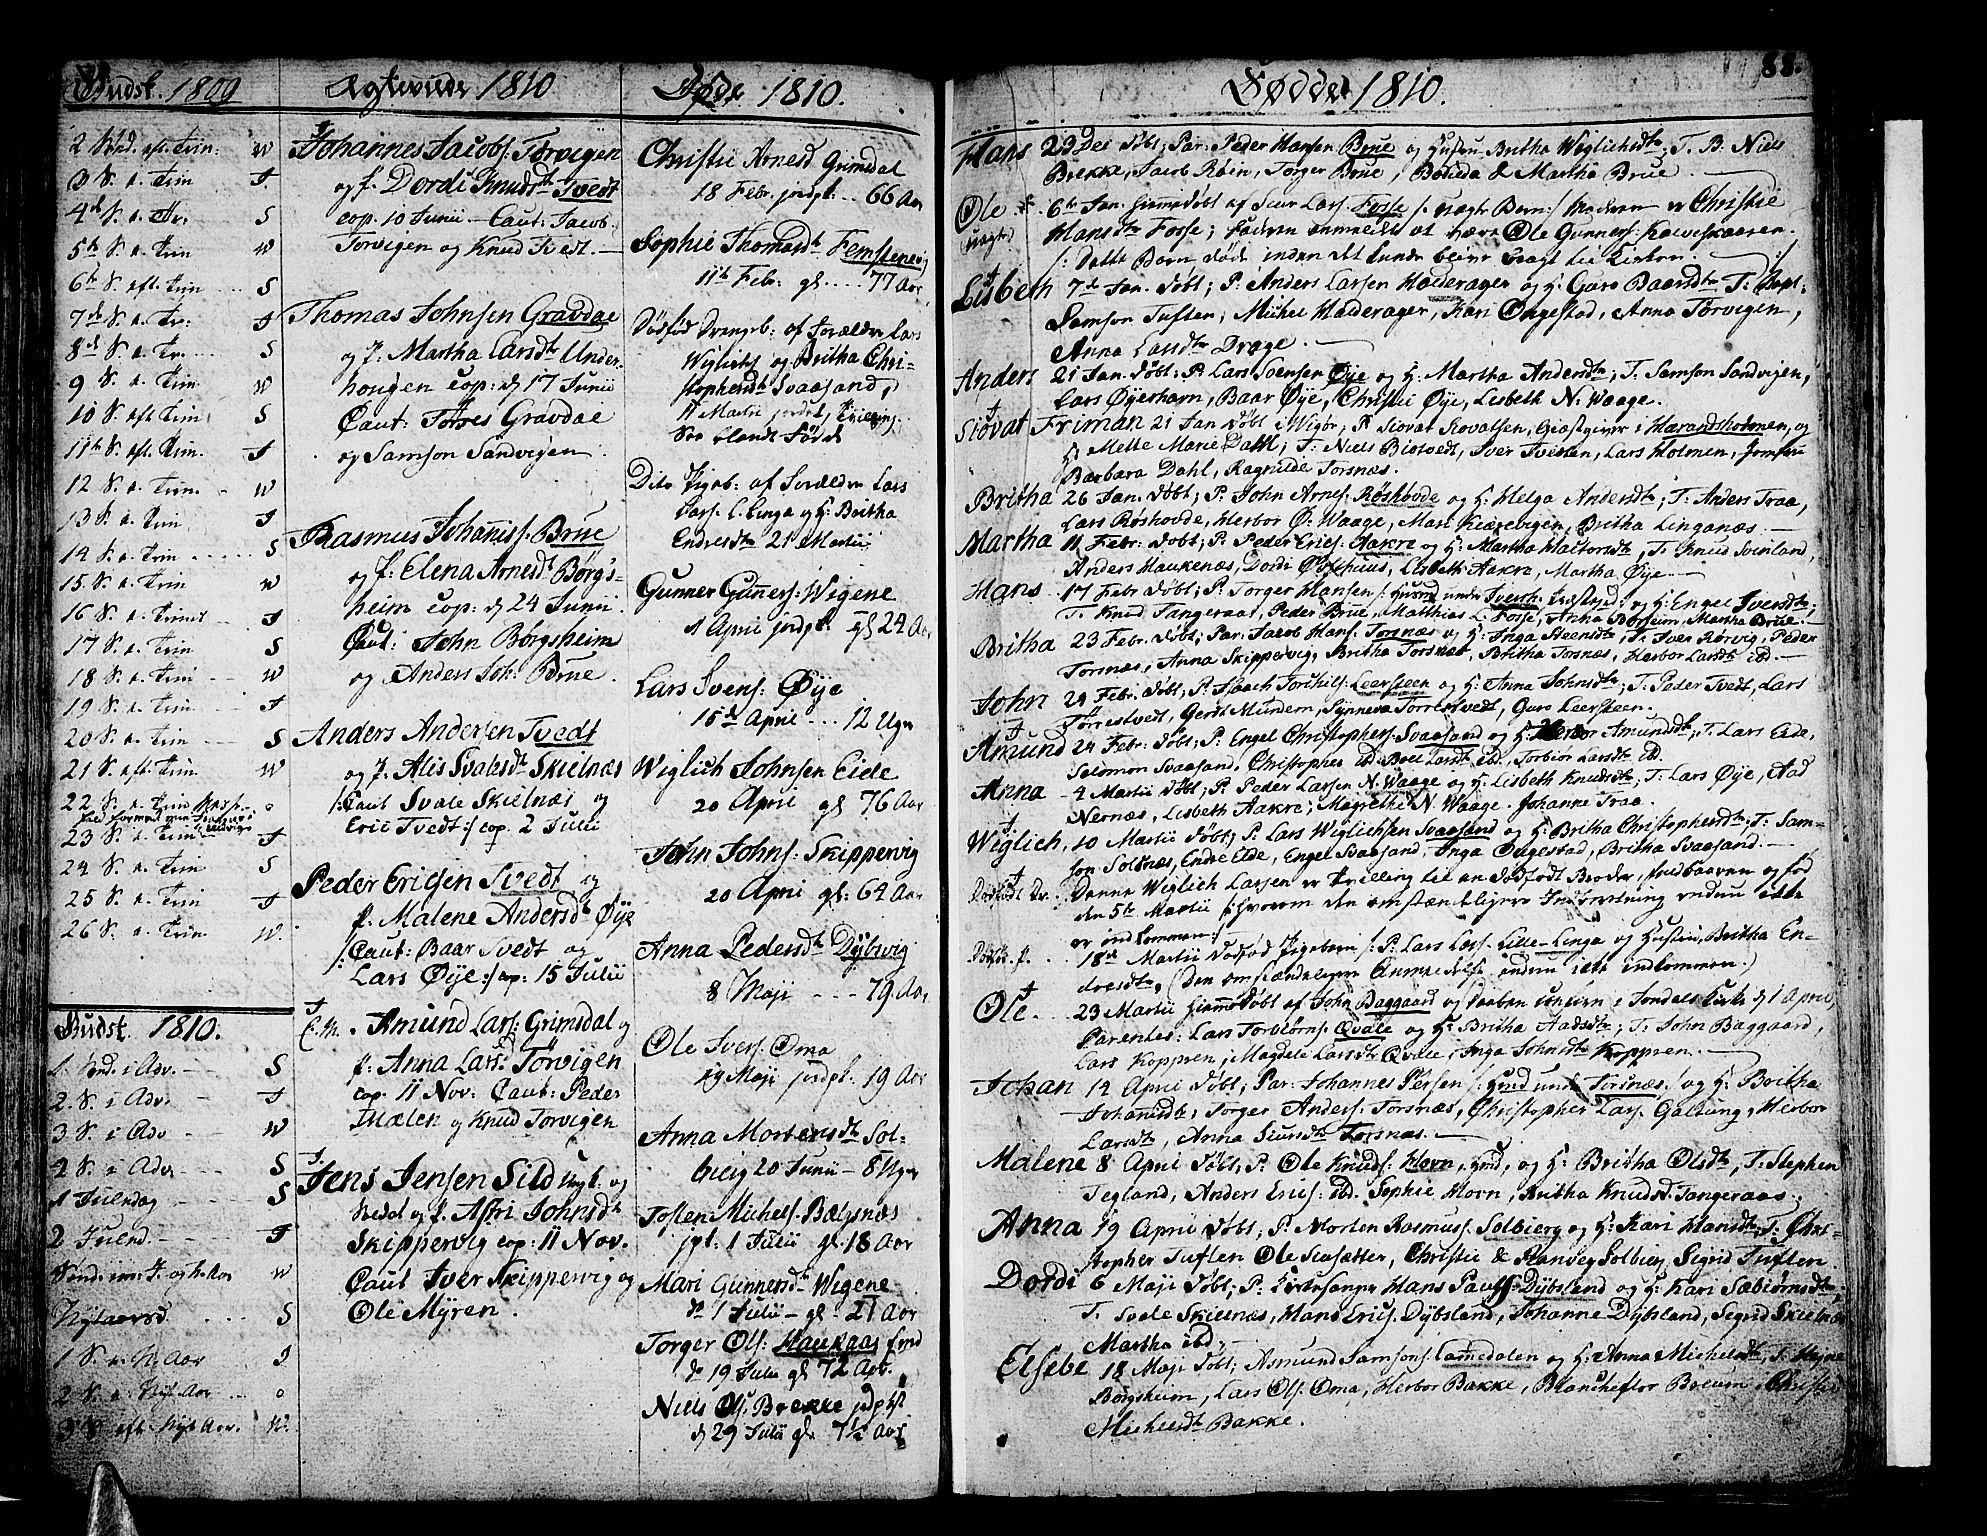 Gudst. 1809
2 Sönd. eft. Trin: W
3 S. e. Trin J.
4de S. e. Tr. S
5te S. e. Trin W
6te S. eft. Trin S
7de S. e. Tr: J
8de S. e. Tr. S
9 S. e. Trin W
10 S. eft Trin S
11te S. eft. Trin. J
12 S. e. Trin. W
13 S. e. Trin J
14 S. e. Trin S
15 S. e. Trin W
16 S. e. Trinit J
17 S. e. Trin S
18 S. e. Trin W
19 S. e. Trin J
20 S. e. Trin S
21 S. eft. Trin W
22 S. e. Trin o
23 S. e. Trin J
24 S. e. Trin S
25 S. e. Trin J
26 S. e. Trin W.
Gudst. 1810.
1. Sönd. i Adv. S
2. S. i Adv. J
3 S. i Adv W
4 S. i Adv S
1 Juledag S
2 Juled. J
Sönd. im. J. og N. Aar W
Nytaarsd. S
1 S. e. N. Aar J
2 S. e. Nyt. Aar o
3 S eft Nyt Aar. W.
Ægteviede 1810
Johannes Jacobs. Torvigen
og p. Dordi Knudsdtr Tvedt
cop. 10 Junii Caut: Jacob
Torvigen og Knud Tvedt.
Thomas Johnsen Gravdae
og P. Martha Larsdtr Under-
hougen cop: d. 17 Junii
Caut: Torres Gravdae
og Samson Sandvigen
Rasmus Johanis: Brue
og p. Elena Arnesdtr Børgs-
heim cop: d. 24 Junii
Caut: John Børgsheim
og Anders Joh: Brue.
Anders Andersen Tvedt
og P. Alis Svalesdtr Skielnæs
/:Caut Svale Skielnæs og
Eric Tvedt:/ cop. 2 Julii
Peder Ericsen Tvedt og
p. Malene Andersdtr Øye
/:Caut: Baar Tvedt og
Lars Øye:/ cop: 15 Julii
E. M. Amund Lars: Grimsdal og
p. Anna Larsd. Torvigen
cop. 11 Nov: Caut: Peder
Mælen og Knud Torvigen
Jens Jensen Sild og
p. Astri Johnsdtr
Skippervig cop: 11 Nov.
Caut Iver Skippervig og
Ole Myren.
Døde 1810.
Christie Arnesd Grimsdal
18 Febr. jordpt. 66 Aar
Sophie Thomasdtr Femstenevig
11te Febr: gl. 77 Aar
Dödfød Drengeb: af Forældre Lars
Wiglichs og Britha Chri-
stophersdtr Svaasand,
Martii jordet, Tvilling
See blandt Fødde
Dito Pigeb: af Forældre Lars
Lars. L. Linga og H: Britha
Endresdtr 21 Martii
Gunner Gunners: Wigene
1 April jordpt. gl 24 Aar
Lars Svens: Øye
15de April 12 Uger
Wiglich Johnsen Eide
20 April gl 76 Aar
John Johns: Skippervig
20 April gl: 64 Aar
Anna Pedersdtr Dybsvig
8 Maji 79 Aar
Ole Ivers. Oma
19 Maji jordpt. 19 Aar
Anna Mortensdtr Sol-
bieig 20 Junii 8 Uger
Tosten Michels. Bælsnæs
jpt: 1 Julii gl. 18 Aar
Mari Gunnersdtr Wigene
d. 1 Julii gl: 21 Aar
Torger Ols: Haukaas
d. 19 Julii gl 72 Aar.
Niels Ols: Brekke jordpt
d. 29 Julii gl. 7½ Aar
88.
Fødde 1810.
Hans 29 Dec döbt; Par: Peder Hansen Brue og Hustru Britha Wiglichsdtr; T. B. Niels
Brekke, Jacob Røin, Torger Brue, Bodilda & Martha Brue
Ole 6te Jan. hiemmedöbt af Lars Fosse /: uægte Barn:/ Moderen er Christie
uægte Hansdtr Fosse; Faderen anmeldt at være Ole Gunners. Kalveskaaren.
/: Dette Barn døde inden det kunde blive bragt til Kirken:/
Lisbeth 7de Jan. döbt; P. Anders Larsen Haiderager og H: Guro Baarsdtr T:
Samson Tuften, Michel Haiderager, Kari Ougestad, Anna Torvigen,
Anna Larsdtr Drage.
Anders 21 Jan. döbt; P. Lars Svensen Øye og H: Martha Andersdtr; T: Samson Sandvigen,
Lars Øyerhavn, Baar Øye, Christie Øye, Lisbeth N. Waage.
Siovat Friman 21 Jan döbt i Wigør; P. Siovat Siovatsen, Giæstgiver i Harandsholmen, og
H: Mette Marie Dahl; T: Niels Biotvedt, Iver Tveiten, Lars Holmen, Jomfru
Barbara Dahl, Ragnilde Torsnæs.
Britha 26 Jan. döbt; P. John Arnes. Røshovde og H: Helga Andersdtr; T: Anders Traa,
Lars Røshovde, Herbor Ø. Waage, Mari Kierevigen, Britha Linganæs.
Martha 11 Febr. döbt; P. Peder Erics: Aakre og H: Martha Haltorsdtr, T. Knud Sveinland,
Anders Haukenæs, Dordi Østhuus, Lisbeth Aakre, Martha Øye
Hans 17 Febr döbt; P. Torger Hansen /: Huusmd under Tvedt :/ og H: Engel Iversdtr
T. Knud Tangeraas, Peder Brue, Matthias L. Fosse, Anna Børsheim, Martha Brue.
Britha 23 Febr: döbt; Par: Jacob Hans: Torsnæs og H: Inga Steensdtr, T. Iver Rørvig, Peder
Torsnæs, Anna Skippervig, Britha Torsnæs, Britha Torsnæs, Herbor Larsdtr ibd.
John 24 Febr. döbt; P. Isaach Torkils: Leersteen og H: Anna Johnsdtr; T: Peder Tvedt, Lars
Tørrestvedt, Gerdt Mundem, Synneva Torrestvedt, Guro Leersteen.
Amund 24 Febr: döbt; P. Engel Christophers: Svaasand og H: Herbor Amundsdtr, T. Lars Eide,
Solomon Svaasand, Christopher ibd Boel Larsdtr ibd, Torbiør Larsdtr ibd.
Anna 4 Martii döbt; P. Peder Larsen N. Waage og H: Lisbeth Knudsdtr, T: Lars Øye, Aad
Nernæs, Lisbeth Aakre; Magrethe N. Waage. Johanne Traa.
Wiglich, 10 Martii döbt; P. Lars Wiglichsen Svaasand og H: Britha Christophersdtr; T. Sam-
son Solsnæs, Endre Eide, Engel Svaasand, Inga Ougestad, Britha Svaasand.
Dödfödt Dr. Denne Wiglich Larsen er Tvilling til en dödfödt Broder, fød
den 5te Martii /: hvorom den omstændeligere Indberetning endnu icke
er indkommen:/
Dödfö. P. 18de Martii dödfød Pigebarn /: P. Lars Lars. Lille-Linga og Hustru Britha En-
dresdtr, (Den omstændeligere Anmeldelse endnu icke indkommen.)
Ole 23 Martii hiemmedöbt af John Baggaard og Daaben confirm. i Jondals Kirke d. 1 April,
Parentes: Lars Torbiörns: Qvale og H: Britha Aadsdtr; T: John Baggaard,
Lars Koppren, Magdele Larsdtr Qvale, Inga Johnsdtr Koppren.
Johan 14 April döbt; Par: Johannes Persen /: Husmd under Torsnæs :/ og H: Britha
Johannisdtr; Torger Anders: Torsnæs, Christopher Lars. Galtung, Herbor
Larsdtr, Anna Torsnæs.
Malene 8 April döbt; P. Ole Knuds: Hovn, Husmd, og H: Britha Olsdtr, T: Stephen
Tegland, Anders Erics: ibd. Sophie Hovn, Britha Knudsd. Tangeraas.
Anna 19 April döbt; P. Morten Rasmus: Solbierg og H: Kari Hansdtr; T. Chri-
stopher Tuften Ole Seusætter, Christie & Ranvey Solbierg Sigrid Tuften.
Dordi 6 Maji döbt; P: Kirkesanger Hans Pauls: Dybsland og H: Kari Sæbiørnsdtr,
T. Svale Skielnæs, Hans Erics. Dybsland, Johanne Dybsland, Segrid Skielnæs
Martha ibd
Elsebe 18 Maji döbt; Asmund Samsons: Samedalen og H: Anna Michelsdtr; T:
Børgsheim, Lars Ols. Oma, Herbor Bakke, Blancheflor Brevm, Christie
Michelsdtr Bakke.